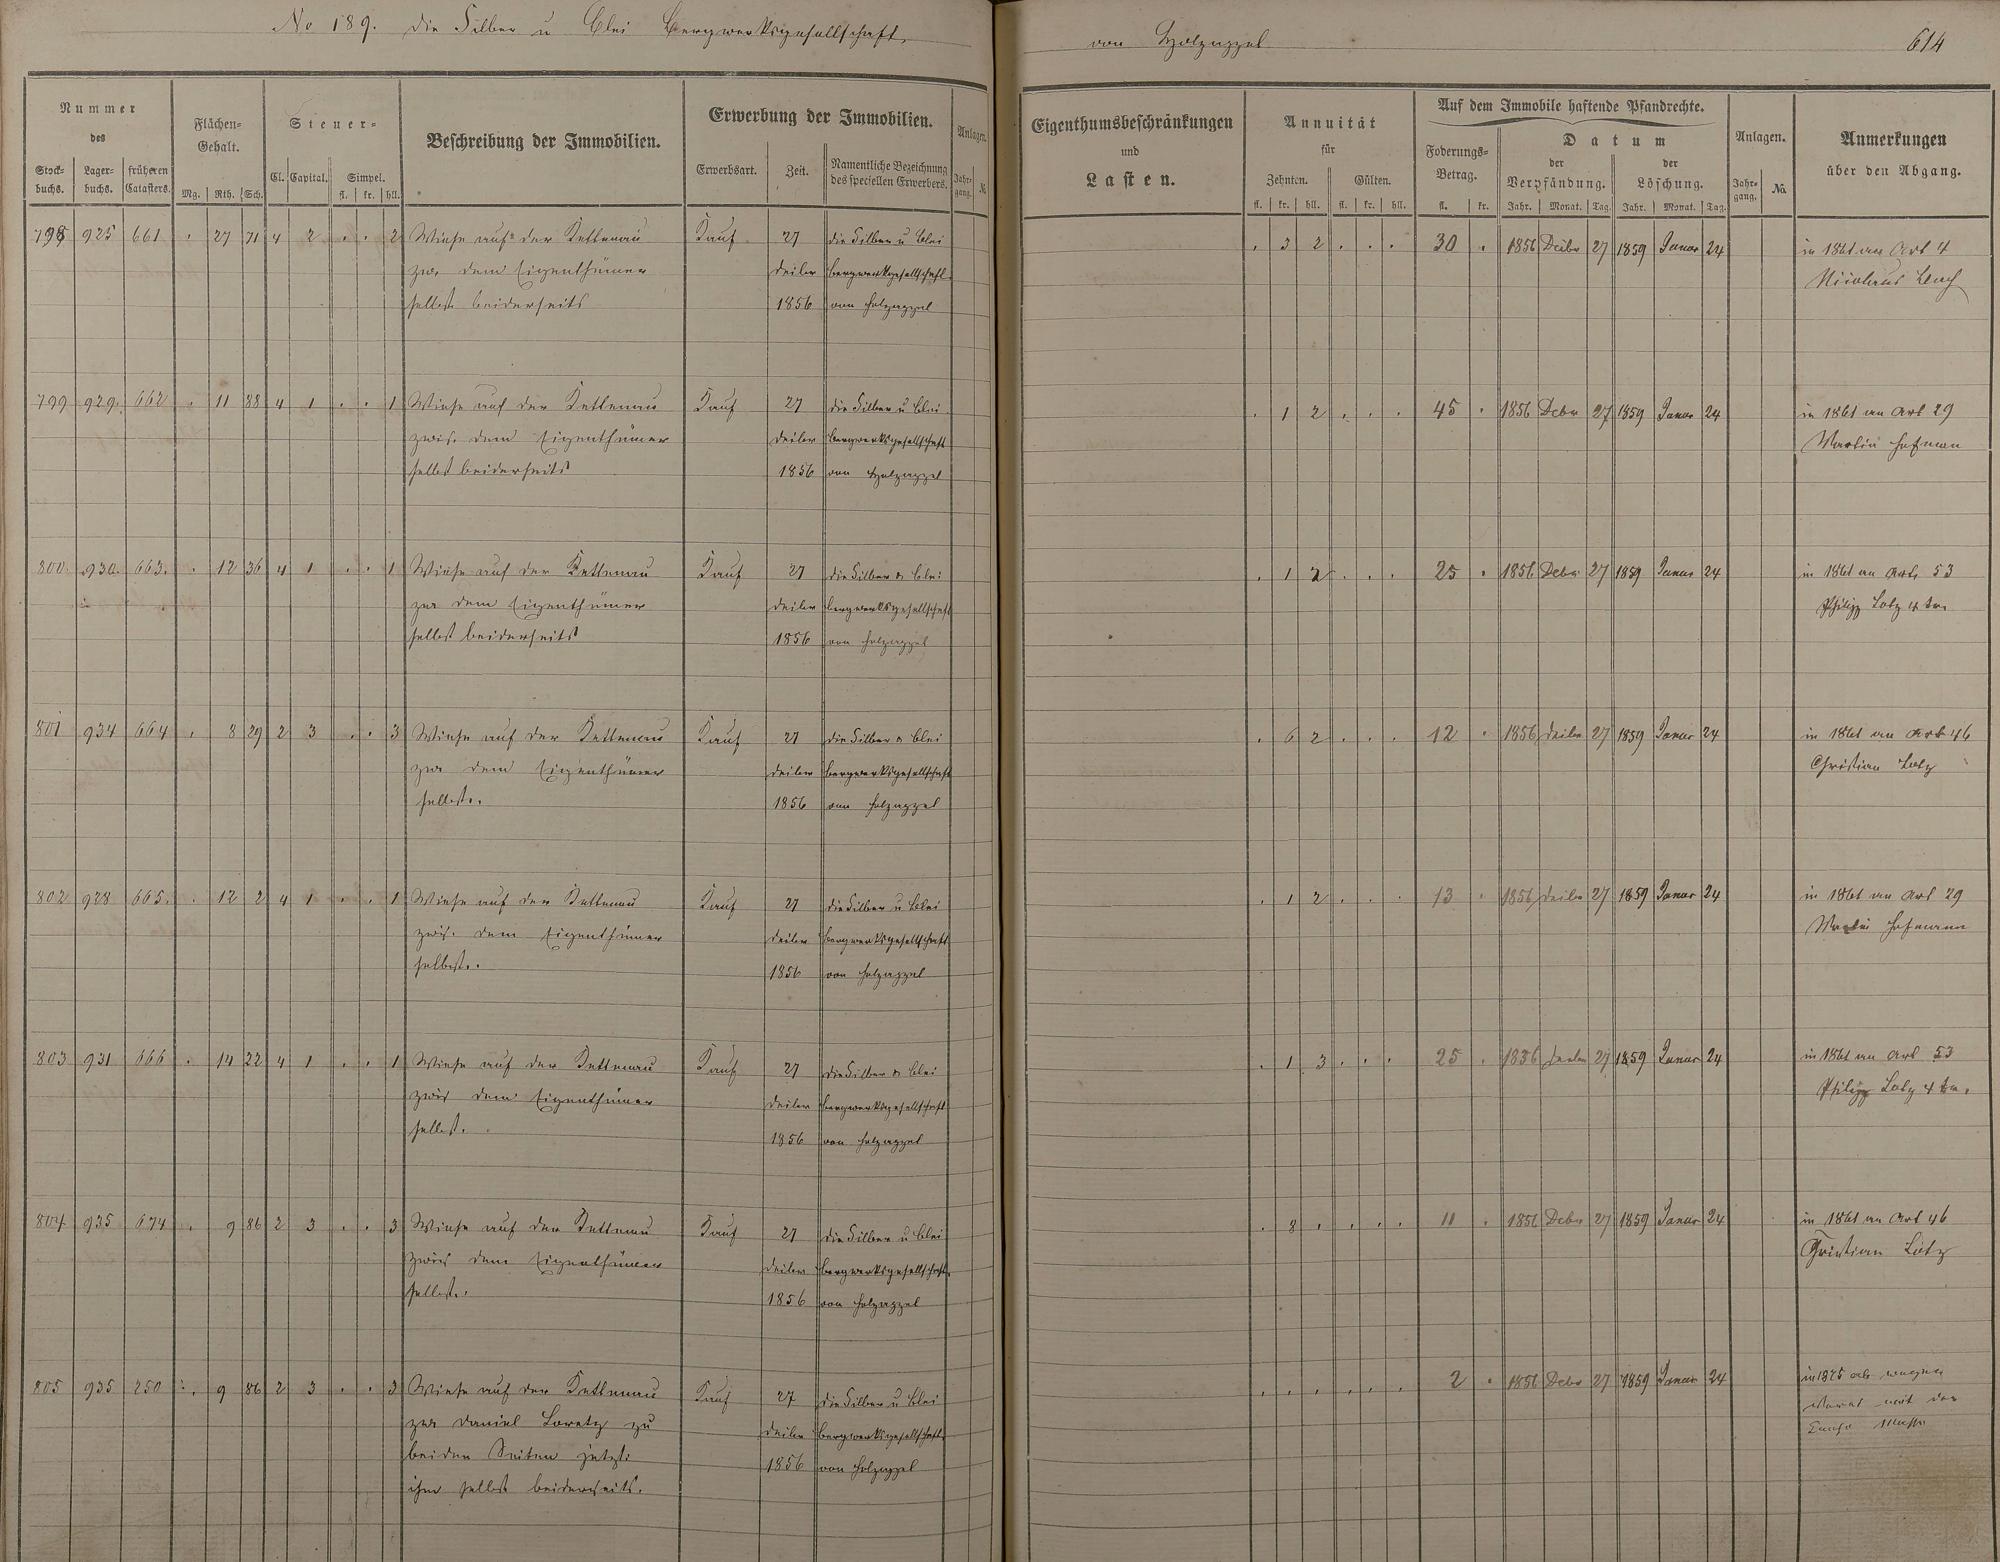 No 189. die Silber u Blei Bergwerksgesellschaft
von Holzappel 614
Nummer des
Stockbuchs. Lagerbuchs. früheren Catasters.
Flächen-Gehalt.
Mg. Rth. Sch.
Steuer-
Cl. Capital. Simpel.
fl. kr. hll.
Beschreibung der Immobilien.
Erwerbung der Immobilien.
Erwerbsart. Zeit. Namentliche Bezeichnung des speciellen Erwerbers.
Anlagen.
Jahrgang. No.
Eigenthumsbeschränkungen
und
Lasten.
Annuität
für
Zehnten. Gülten.
fl. kr. hll. fl. kr. hll.
Auf dem Immobile haftende Pfandrechte.
Foderungs-Betrag.
fl. kr.
Datum
der Verpfändung. der Löschung.
Jahr. Monat. Tag. Jahr. Monat. Tag.
Anlagen.
Jahrgang. No.
Anmerkungen
über den Abgang.
798 925 661 . 27 71 4 2 . . 2 Wiese auf der Kettenau Kauf 27 die Silber u Blei . 3 2 . . . 30 . 1856 Decbr 27 1859 Januar 24 in 1861 an Art 4
zw. dem Eigenthümer Decbr Bergwerksgesellschaft Nicolaus
selbst beiderseits 1856 von Holzappel
799 929. 662 . 11 88 4 1 . . 1 Wiese auf der Kettenau Kauf 27 die Silber u Blei . 1 2 . . . 45 . 1856 Decbr 27 1859 Januar 24 in 1861 an Art 29
zwis. dem Eigenthümer Decbr Bergwerksgesellschaft Martin Hofman
selbst beiderseits 1856 von Holzappel
800. 930. 663. . 12 36 4 1 . . 1 Wiese auf der Kettenau Kauf 27 die Silber & Blei . 1 2 . . . 25 . 1856 Decbr 27 1859 Januar 24 in 1861 an Art. 53
zw dem Eigenthümer Decbr Bergwerksgesellschaft Philipp Lotz 4 ten
selbst beiderseits 1856 von Holzappel
801 934 664 . 8 29 2 3 . . 3 Wiese auf der Kettenau Kauf 27 die Silber & Blei . 6 2 . . . 12 . 1856 Decbr 27 1859 Januar 24 in 1861 an Art 46
zw dem Eigenthümer Decbr Bergwerksgesellschaft Christian Lotz
selbst. 1856 von Holzappel
802 928 665. . 12 2 4 1 . . 1 Wiese auf der Kettenau Kauf 27 die Silber u Blei . 1 2 . . . 13 . 1856 Decbr 27 1859 Januar 24 in 1861 an Art 29
zwis. dem Eigenthümer Decbr Bergwerksgesellschaft Martin Hofmann
selbst. 1856 von Holzappel
803 931 666 . 14 22 4 1 . . 1 Wiese auf der Kettenau Kauf 27 die Silber & Blei . 1 3 . . . 25 . 1856 Decbr 27 1859 Januar 24 in 1861 an Art 53
zwis dem Eigenthümer Decbr Bergwerksgesellschaft Philipp Lotz 4 ten.
selbst. 1856 von Holzappel
804 935 674 . 9 86 2 3 . . 3 Wiese auf der Kettenau Kauf 27 die Silber u Blei . 8 . . . . 11 . 1856 Decbr 27 1859 Januar 24 in 1861 an Art 46
zwis dem Eigenthümer Decbr Bergwerksgesellschaft Christian Lotz
selbst. 1856 von Holzappel
805 935 250 . 9 86 2 3 . . 3 Wiese auf der Kettenau Kauf 27 die Silber u Blei . . . . . . 2 . 1856 Decbr 27 1859 Januar 24 in 1875 ab wegen
zw Daniel Loretz zu Decbr Bergwerksgesellschaft
beiden Seiten jetzt 1856 von Holzappel
ihm selbst beiderseits.